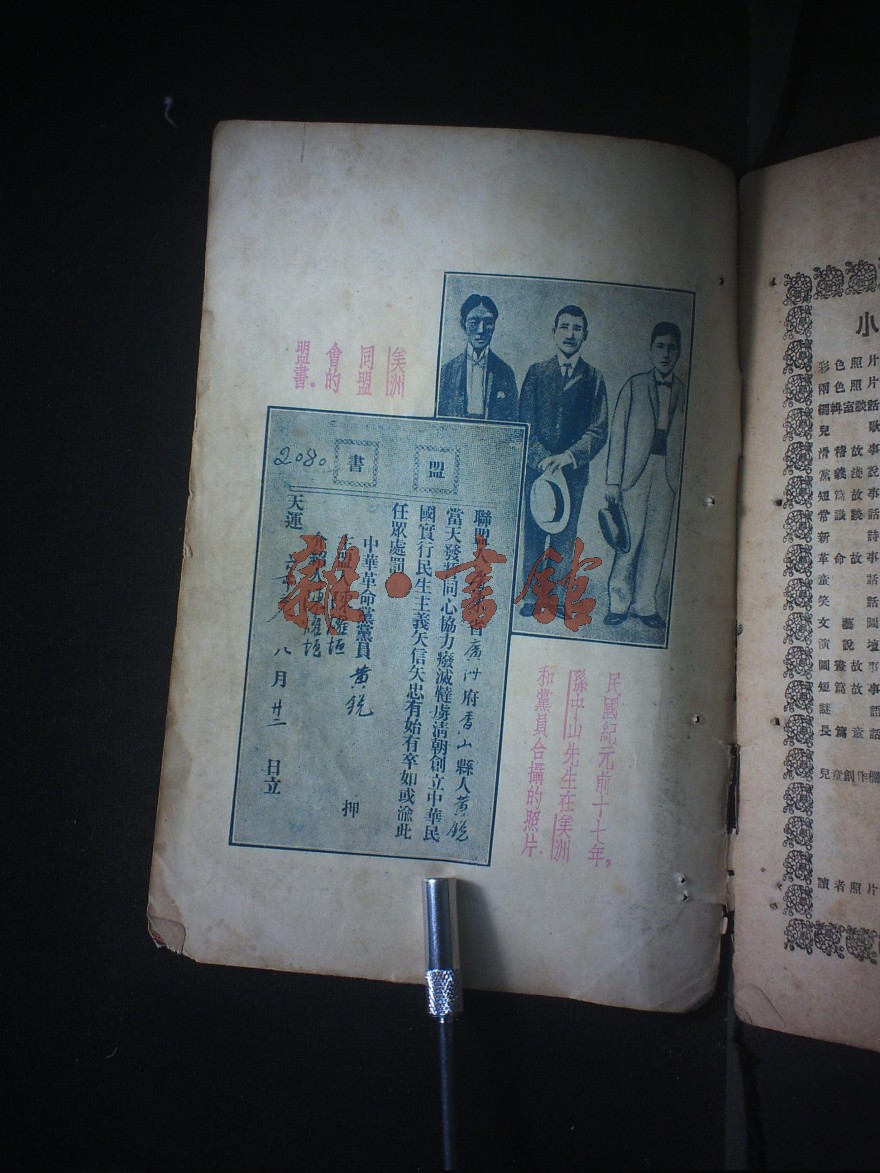 美洲
同盟
會的
盟書。
盟書
2080
聯盟人廣東省廣州府香山縣人黃銳
當天發誓同心協力廢滅韃虜清朝創立中華民
國實行民生主義矢信矢忠有始有卒如或渝此
任眾處罰
中華革命黨黨員 黃銳
押
主盟人
介紹人
天運 八月廿二日立
民國紀元前十七年,
孫中山先生在美洲
和黨員合攝的照片.
雜·書館
小
彩色照片
兩色照片
編輯室談話
兒歌
滑稽故事
黨義淺說
短篇故事
常識談話
新詩
革命故事
童話
笑話
文藝圃
演說壇
圖畫故事
短篇故事
謎語
長篇童話
兒童創作欄
讀者照片